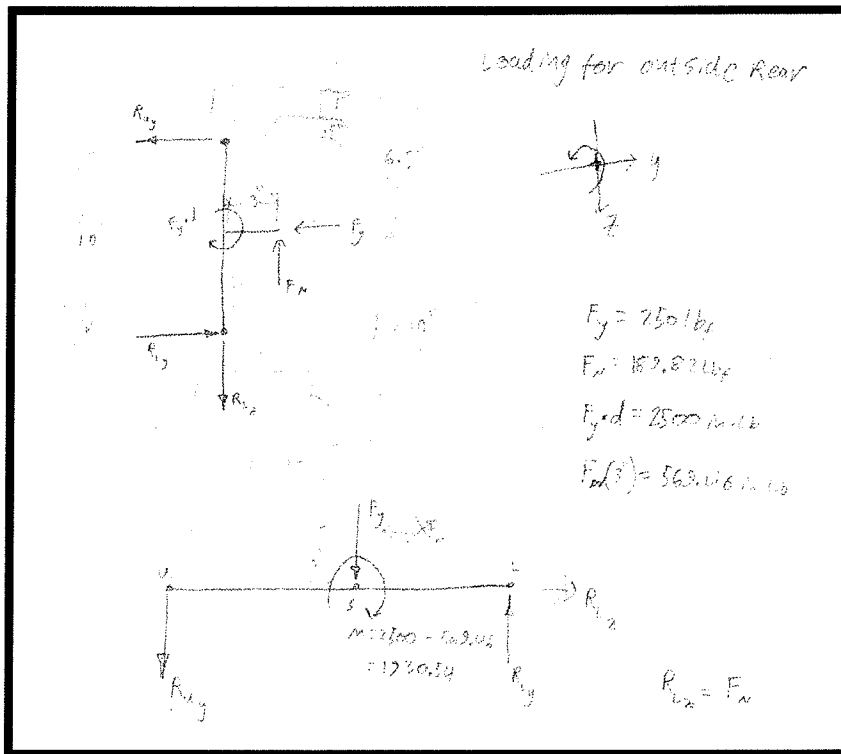 Loading for outside Rear
Ruy
6.5
y
z
3"
Fy·d
Fy
FN
10"
RLy
RLz
Fy = 250 lbf
FN = 189.82 lbf
Fy·d = 2500 in·lb
FN(3") = 569.46 in·lb
Fy
U
S
L
RLz
M = 2500 - 569.46
= 1930.54
Ruy
RLy
RLz = FN